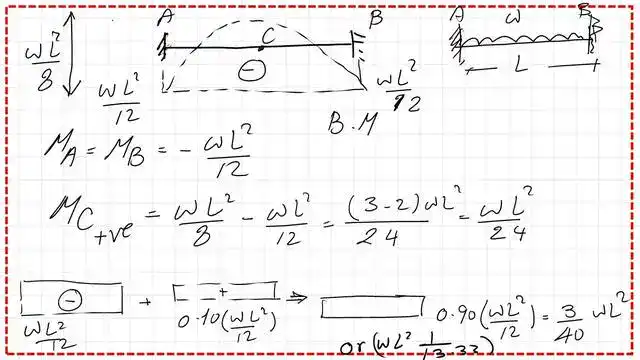 A B A W B
wL²/8 C
wL²/12 ⊖ wL²/12 L
B.M
M_A = M_B = - wL²/12
M_C+ve = wL²/8 - wL²/12 = (3-2)wL²/24 = wL²/24
⊖ + + ⇒ 0.90(wL²/12) = 3/40 wL²
wL²/12 0.10(wL²/12) or (wL² 1/13.33)